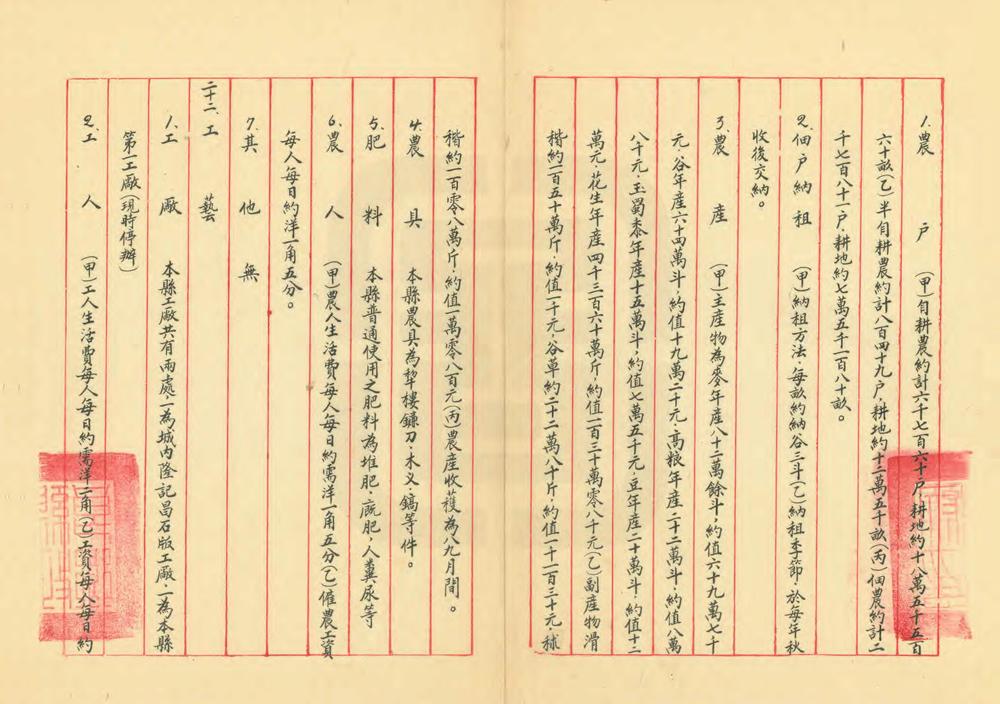 1.農戶　(甲)自耕農約計六千七百六十戶,耕地約十八萬五千五百
六十畝(乙)半自耕農約計八百四十九戶,耕地約十二萬五千畝(丙)佃農約計二
千七百八十一戶,耕地約七萬五千一百八十畝。
2.佃戶納租　(甲)納租方法,每畝約納谷三斗(乙)納租季節,於每年秋
收後交納。
3.農產　(甲)主產物為麥年產八十二萬餘斗,約值六十九萬七千
元,谷年產六十四萬斗,約值十九萬二千元,高粮年產二十二萬斗,約值八萬
八千元,玉蜀黍年產十五萬斗,約值七萬五千元,豆年產二十萬斗,約值十二
萬元,花生年產四千三百六十萬斤,約值一百三十萬零八千元(乙)副產物滑
稭約一百五十萬斤,約值一千元,谷草約二十二萬八千斤,約值一千一百三十元,秫
稭約一百零八萬斤,約值一萬零八百元(丙)農產收獲為八九月間。
4.農具　本縣農具為犂樓鐮刀,木义,鎬等件。
5.肥料　本縣普通使用之肥料為堆肥,廐肥,人糞尿等
6.農人　(甲)農人生活費每人每日約需洋一角五分(乙)僱農工資
每人每日約洋一角五分。
7.其他　無
二十二.工藝
1.工廠　本縣工廠共有兩處,一為城內隆記昌石版工廠,一為本縣
第一工廠(現時停辦)
2.工人　(甲)工人生活費每人每日約需洋二角(乙)工資每人每日約